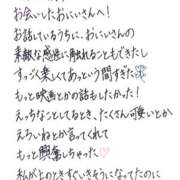 お会いしたおにいさんへ！
お話しているうちに、おにいさんの
素敵な感性に触れることもできたし
すっごく楽しくてあっという間すぎた
もっと映画とかの話もしたかった！
えっちなことしてるとき、たくさん可愛いとか
えちいねとか言ってくれて
もっと興奮しちゃった♡
私が上のときすごいきそうになってたのに